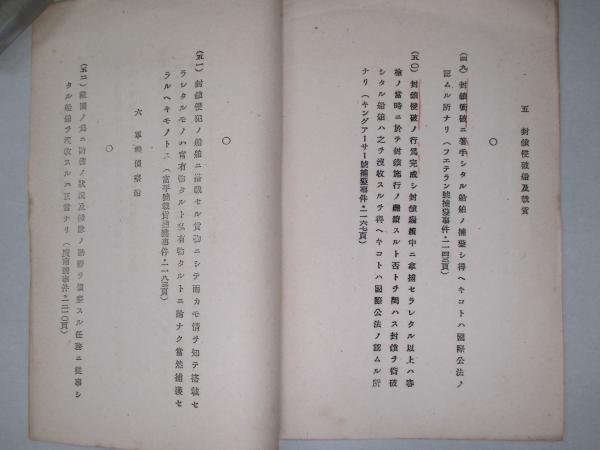 五 封鎖侵破船及載貨
(四九) 封鎖衝破ニ著手シタル船舶ノ捕獲シ得ヘキコトハ國際公法ノ
認ムル所ナリ(フエテラン號捕獲事件・二一四三頁)
(五〇) 封鎖侵破ノ行爲完成シ封鎖繼續中ニ拿捕セラレタル以上ハ審
檢ノ當時ニ於テ封鎖施行ノ繼續スルト否トヲ問ハス封鎖ヲ侵破
シタル船舶ハ之ヲ沒收スルヲ得ヘキコトハ國際公法ノ認ムル所
ナリ(キングアーサー號捕獲事件・二一六七頁)
〇
(五一) 封鎖侵犯ノ船舶ニ搭載セル貨物ニシテ而カモ情ヲ知テ搭載セ
ラレタルモノハ官有物タルト私有物タルトニ論ナク當然捕獲セ
ラルヘキモノトス(富平號載貨捕獲事件・二一八三頁)
〇
六 軍事偵察船
〇
(五二) 敵國ノ爲ニ防備ノ狀況及艦隊ノ動靜ヲ偵察スル任務ニ從事シ
タル船舶ヲ沒收スルハ正當ナリ(

號捕獲事件・二二一〇頁)